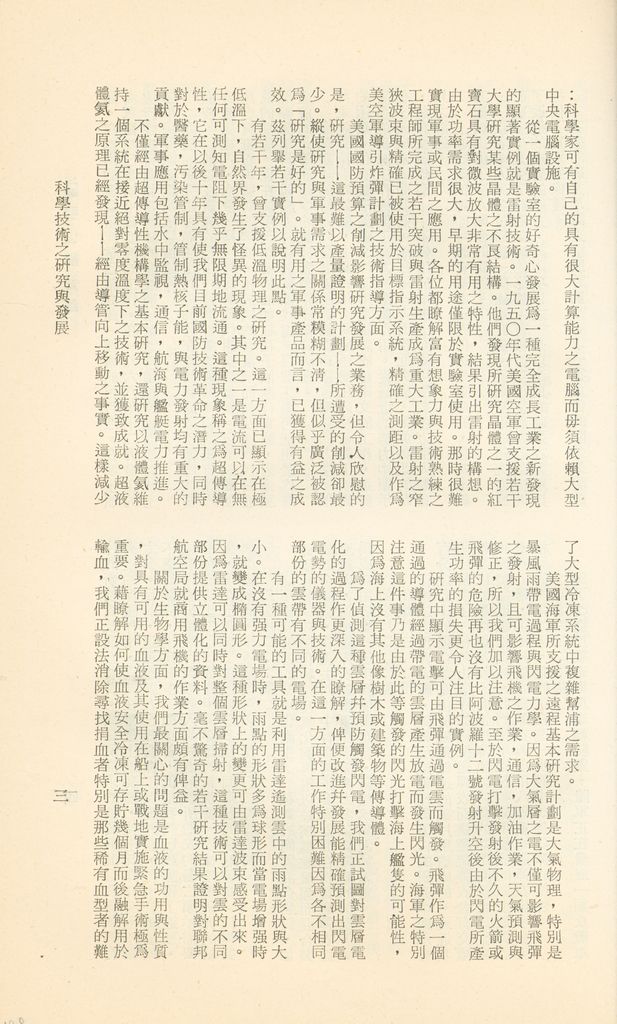 ：科學家可有自己的具有很大計算能力之電腦而毋須依賴大型
中央電腦設施。
從一個實驗室的好奇心發展爲一種完全成長工業之新發現
的顯著實例就是雷射技術。一九五〇年代美國空軍曾支援若干
大學研究某些晶體之不良結構。他們發現所研究晶體之一的紅
寶石具有對微波放大非常有用之特性，結果引出雷射的構想。
由於功率需求很大，早期的用途僅限於實驗室使用。那時很難
實現軍事或民間之應用。各位都瞭解富有想象力與技術熟練之
工程師所完成之若干突破與雷射生產成爲重大工業。雷射之窄
狹波束與精確已被使用於目標指示系統，精確之測距以及作爲
美空軍導引炸彈計劃之技術指導方面。
美國國防預算之削減影響研究發展之業務，但令人欣慰的
是，研究——這最難以產量證明的計劃——所遭受的削減卻最
少。縱使研究與軍事需求之關係常模糊不清，但似乎廣泛被認
爲「研究是好的」。就有用之軍事產品而言，已獲得有益之成
效。茲列舉若干實例以說明此點。
有若干年，曾支援低溫物理之研究。這一方面已顯示在極
低溫下，自然界發生了怪異的現象。其中之一是電流可以在無
任何可測知電阻下幾乎無限期地流通。這種現象稱之爲超傳導
性，它在以後十年具有使我們目前國防技術革命之潛力，同時
對於醫藥，汚染管制，管制熱核子能，與電力發射均有重大的
貢獻。軍事應用包括水中監視，通信，航海與艦艇電力推進。
不僅經由超傳導性機構學之基本研究，還研究以液體氦維
持一個系統在接近絕對零度溫度下之技術，並獲致成就。超液
體氦之原理已經發現——經由導管向上移動之事實。這樣減少
科學技術之研究與發展
了大型冷凍系統中複雜幫浦之需求。
美國海軍所支援之遠程基本研究計劃是大氣物理，特別是
暴風雨帶電過程與閃電力學。因爲大氣層之電不僅可影響飛彈
之發射，且可影響飛機之作業，通信，加油作業，天氣預測與
修正，所以我們加以注意。至於閃電打擊發射後不久的火箭或
飛彈的危險再也沒有比阿波羅十二號發射升空後由於閃電所產
生功率的損失更令人注目的實例。
研究中顯示電擊可由飛彈通過電雲而觸發。飛彈作爲一個
通過的導體經過帶電的雲層產生放電而發生閃光。海軍之特別
注意這件事乃是由於此等觸發的閃光打擊海上艦隻的可能性，
因爲海上沒有其他像樹木或建築物等傳導體。
爲了偵測這種雲層幷預防觸發閃電，我們正試圖對雲層電
化的過程作更深入的瞭解，俾便改進幷發展能精確預測出閃電
電勢的儀器與技術。在這一方面的工作特別困難因爲各不相同
部份的雲帶有不同的電場。
有一種可能的工具就是利用雷達遙測雲中的雨點形狀與大
小。在沒有强力電場時，雨點的形狀多爲球形而當電場增强時
，就變成橢圓形。這種形狀上的變更可由雷達波束感受出來。
因爲雷達可以同時對整個雲層掃射，這種技術可以對雲的不同
部份提供立體化的資料。毫不驚奇的若干研究結果證明對聯邦
航空局就商用飛機的作業方面頗有俾益。
關於生物學方面，我們最關心的問題是血液的功用與性質
，對具有可用的血液及其使用在船上或戰地實施緊急手術極爲
重要。藉瞭解如何使血液安全冷凍可存貯幾個月而後融解用於
輸血，我們正設法消除尋找捐血者特別是那些稀有血型者的難
三